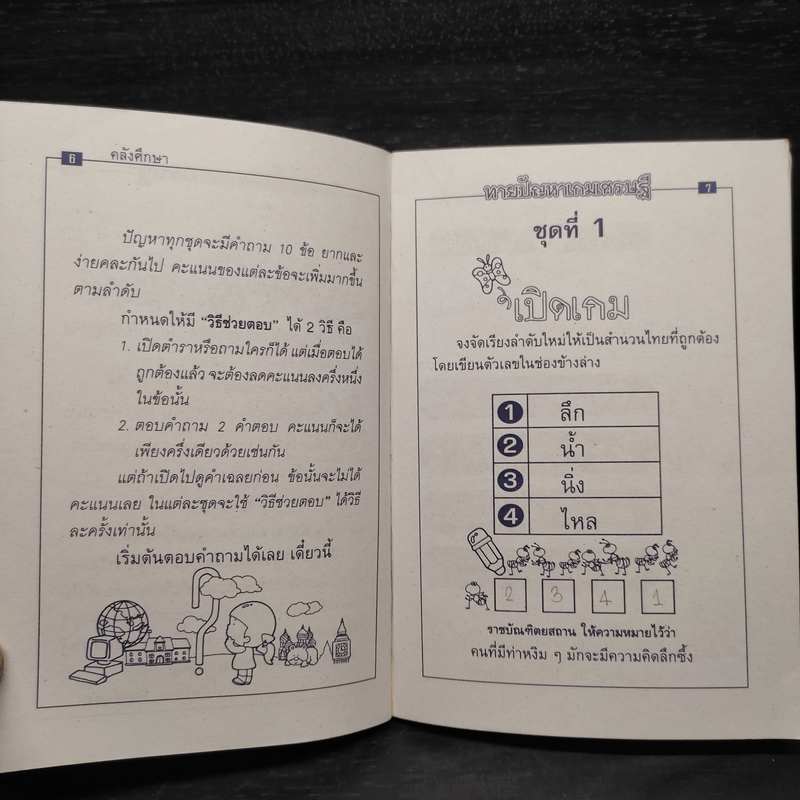 6 คลังศึกษา
ปัญหาทุกชุดจะมีคำถาม 10 ข้อ ยากและ
ง่ายคละกันไป คะแนนของแต่ละข้อจะเพิ่มมากขึ้น
ตามลำดับ
กำหนดให้มี “วิธีช่วยตอบ” ได้ 2 วิธี คือ
1. เปิดตำราหรือถามใครก็ได้ แต่เมื่อตอบได้
ถูกต้องแล้ว จะต้องลดคะแนนลงครึ่งหนึ่ง
ในข้อนั้น
2. ตอบคำถาม 2 คำตอบ คะแนนก็จะได้
เพียงครึ่งเดียวด้วยเช่นกัน
แต่ถ้าเปิดไปดูคำเฉลยก่อน ข้อนั้นจะไม่ได้
คะแนนเลย ในแต่ละชุดจะใช้ “วิธีช่วยตอบ” ได้วิธี
ละครั้งเท่านั้น
เริ่มต้นตอบคำถามได้เลย เดี๋ยวนี้
ทายปัญหาเกมเศรษฐี 7
ชุดที่ 1
เปิดเกม
จงจัดเรียงลำดับใหม่ให้เป็นสำนวนไทยที่ถูกต้อง
โดยเขียนตัวเลขในช่องข้างล่าง
1 ลึก
2 น้ำ
3 นิ่ง
4 ไหล
2 3 4 1
ราชบัณฑิตยสถาน ให้ความหมายไว้ว่า
คนที่มีท่าหงิม ๆ มักจะมีความคิดลึกซึ้ง